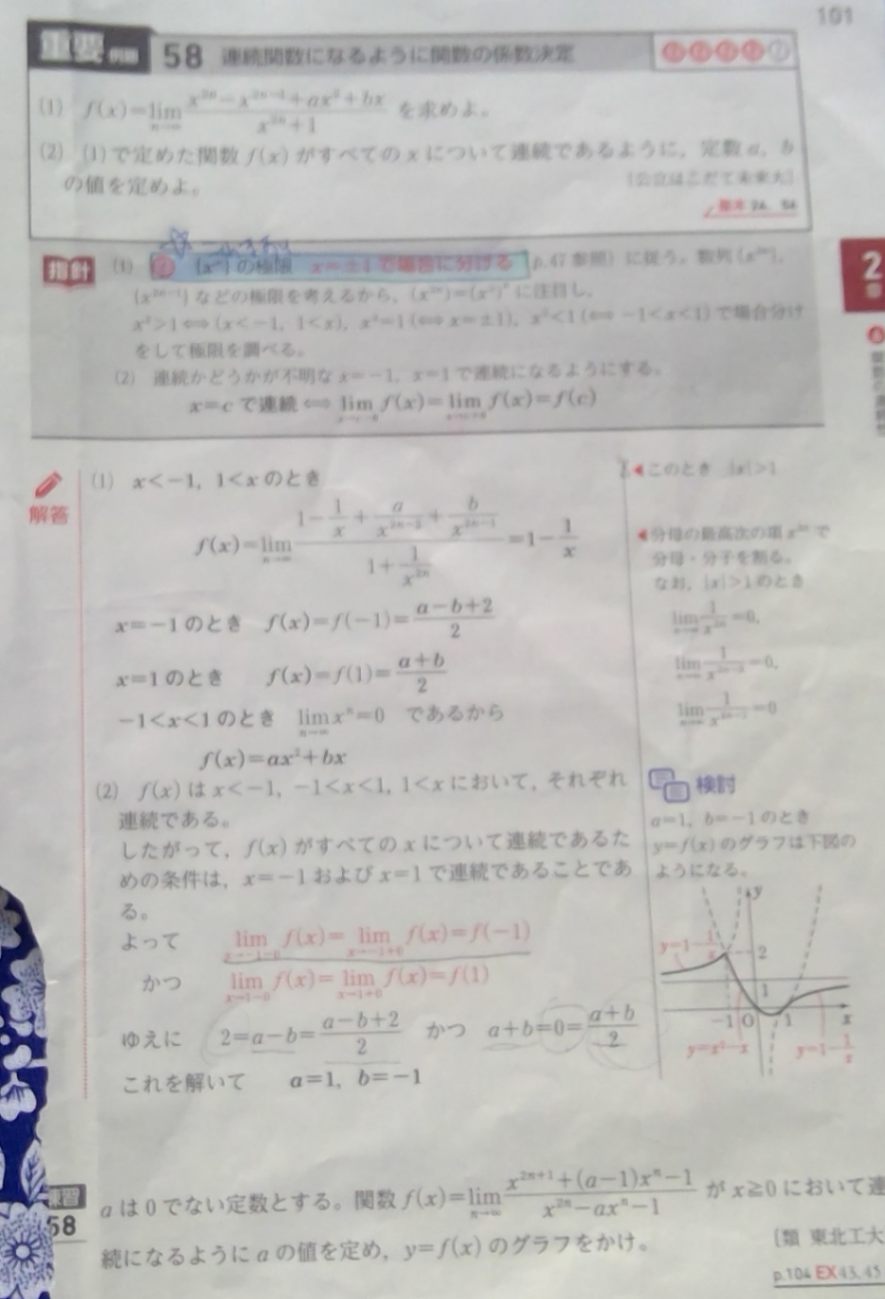 101
重要 例題 58 連続関数になるように関数の係数決定
(1) f(x)=lim[n→∞] (x^{2n}−x^{2n−1}+ax²+bx)/(x^{2n}+1) を求めよ。
(2) (1)で定めた関数 f(x) がすべての x について連続であるように，定数 a，b
の値を定めよ。
[公立はこだて未来大]
指針
(1) {xⁿ}の極限 x=±1で場合に分ける (p.47 参照) に従う。数列{x^{2n}},
{x^{2n−1}} などの極限を考えるから，{x^{2n}}={(x²)ⁿ} に注目し，
x²>1⟺(x<−1, 1<x), x²=1(⟺x=±1), x²<1(⟺−1<x<1)で場合分け
をして極限を調べる。
(2) 連続かどうかが不明な x=−1, x=1 で連続になるようにする。
x=c で連続 ⟺ lim[x→c−0] f(x)=lim[x→c+0] f(x)=f(c)
2
章
解答
(1) x<−1, 1<x のとき
◀このとき |x|>1
f(x)=lim[n→∞] (1−1/x+a/x^{2n−2}+b/x^{2n−1})/(1+1/x^{2n})=1−1/x
◀分母の最高次の項 x^{2n} で
分母・分子を割る。
なお，|x|>1 のとき
lim[n→∞] 1/x^{2n}=0,
lim[n→∞] 1/x^{2n−2}=0,
lim[n→∞] 1/x^{2n−1}=0
x=−1 のとき f(x)=f(−1)=(a−b+2)/2
x=1 のとき f(x)=f(1)=(a+b)/2
−1<x<1 のとき lim[n→∞] xⁿ=0 であるから
f(x)=ax²+bx
(2) f(x) は x<−1, −1<x<1, 1<x において，それぞれ
連続である。
したがって，f(x) がすべての x について連続であるた
めの条件は，x=−1 および x=1 で連続であることであ
る。
よって lim[x→−1−0] f(x)=lim[x→−1+0] f(x)=f(−1)
かつ lim[x→1−0] f(x)=lim[x→1+0] f(x)=f(1)
ゆえに 2=a−b=(a−b+2)/2 かつ a+b=0=(a+b)/2
これを解いて a=1, b=−1
検討
a=1, b=−1 のとき
y=f(x) のグラフは下図の
ようになる。
y
y=1−1/x
2
1
−1 O 1 x
y=x²−x y=1−1/x
練習
58
a は 0 でない定数とする。関数 f(x)=lim[n→∞] (x^{2n+1}+(a−1)xⁿ−1)/(x^{2n}−axⁿ−1) が x≧0 において連
続になるように a の値を定め，y=f(x) のグラフをかけ。
[類 東北工大
p.104 EX 43, 45